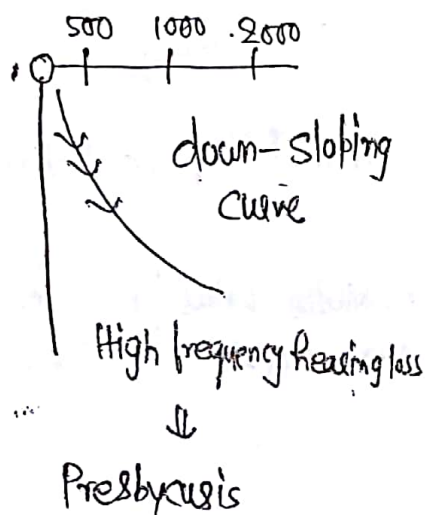 500 1000 2000
down-sloping
curve
High frequency hearing loss
⇓
Presbycusis